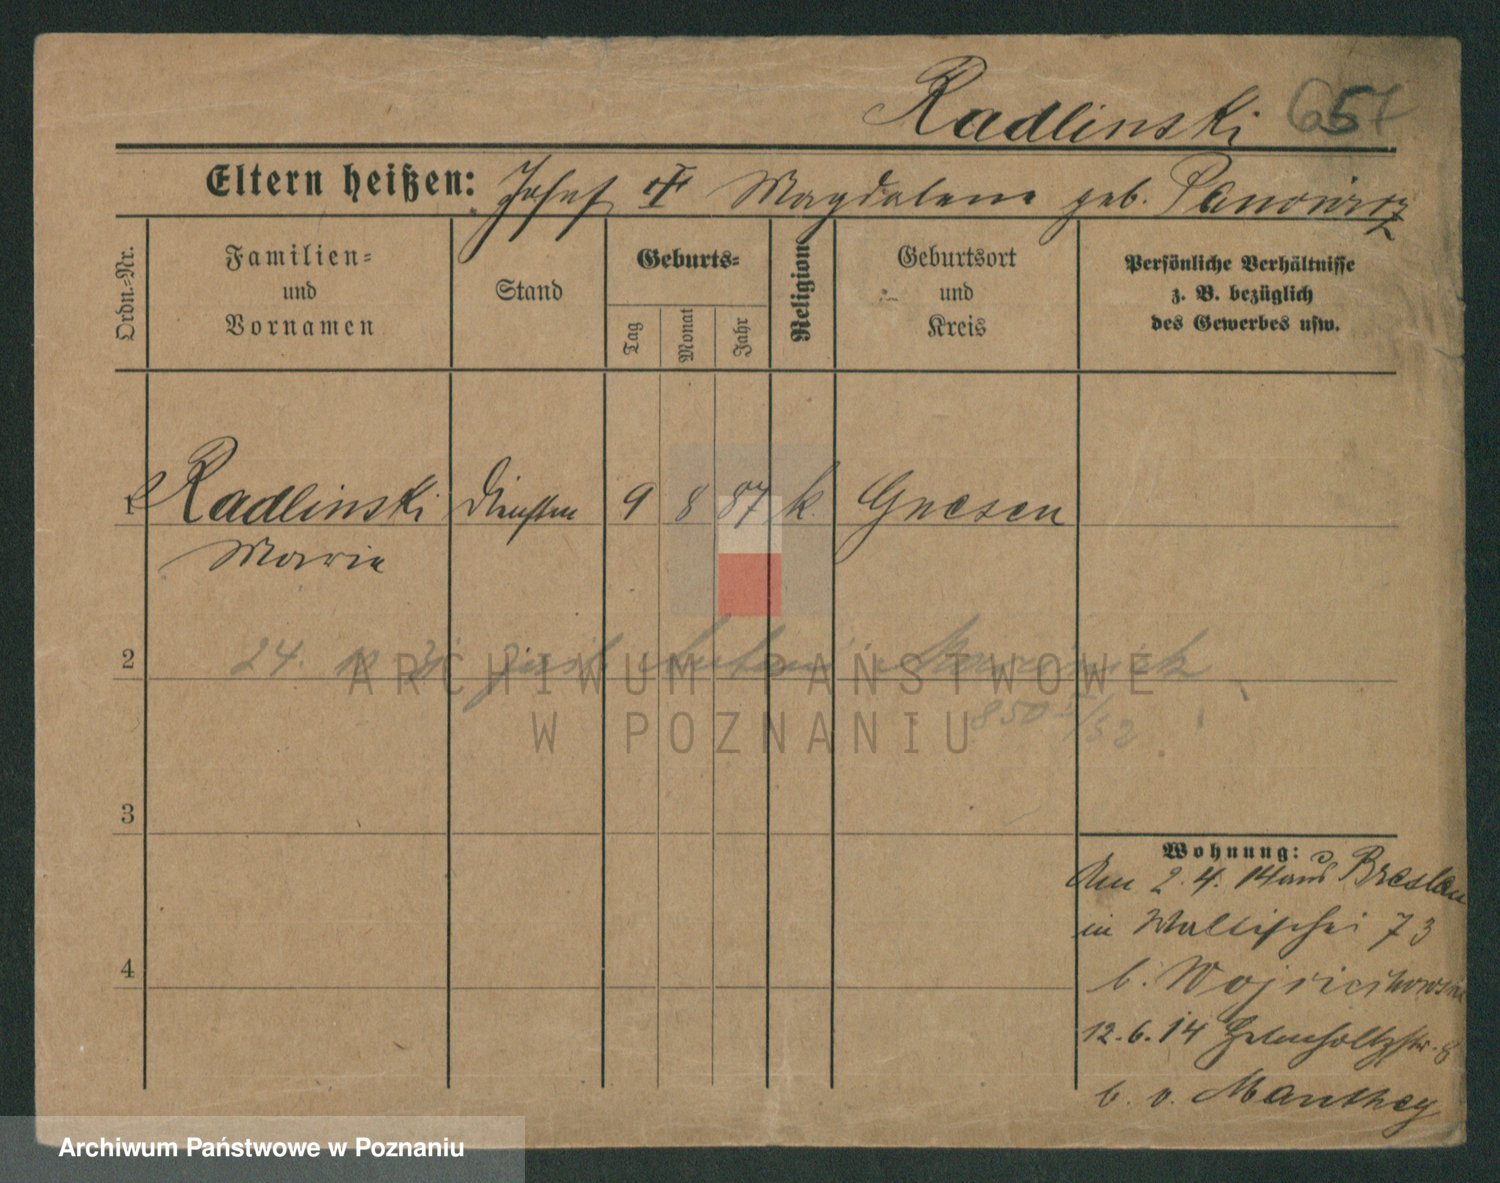 Radlinski 657
Eltern heißen: Josef † Magdalena geb. Panowicz
Ordn.-Nr.
Familien-
und
Vornamen
Stand
Geburts-
Tag
Monat
Jahr
Religion
Geburtsort
und
Kreis
Persönliche Verhältnisse
z. B. bezüglich
des Gewerbes usw.
1 Radlinski 9 8 87 k Gnesen
Marie
2 24.
ARCHIWUM PAŃSTWOWE
W POZNANIU
850
3
Wohnung:
2. 4. 14 aus Breslau
in Wallischei 73
4
b.
12. 6. 14
b. v. Manthey
Archiwum Państwowe w Poznaniu